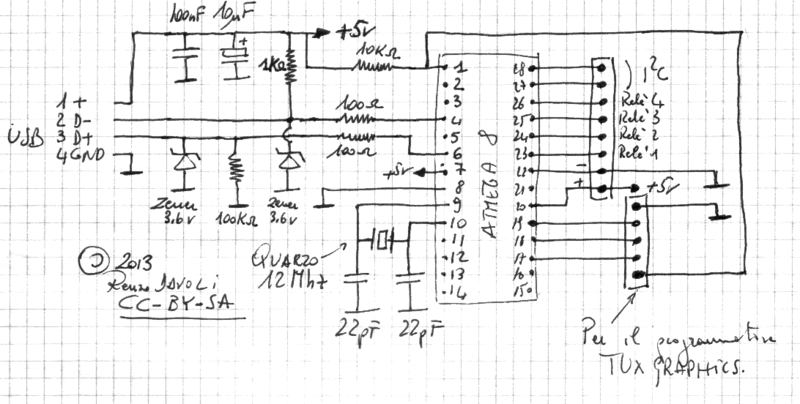 100nF 10µF
+
+5v
1KΩ
10KΩ
USB
1 +
2 D-
3 D+
4 GND
100Ω
100Ω
Zener
3.6v
100KΩ
Zener
3.6v
+5v
ATMEGA 8
1
2
3
4
5
6
7
8
9
10
11
12
13
14
28
27
26
25
24
23
22
21
20
19
18
17
16
15
) I²C
Relè 4
Relè 3
Relè 2
Relè 1
-
+
+5v
QUARZO
12 Mhz
22pF 22pF
2013
Renzo
CC-BY-SA
Per il programmatore
TUXGRAPHICS.